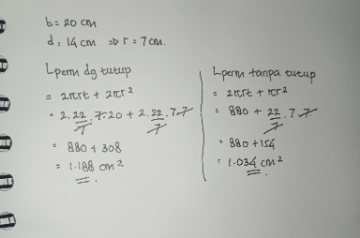 b = 20 cm
d = 14 cm ⇒ r = 7 cm.
Lperm dg tutup
= 2πrt + 2πr²
= 2.22/7.7.20 + 2.22/7.7.7
= 880 + 308
= 1.188 cm²
Lperm tanpa tutup
= 2πrt + πr²
= 880 + 22/7.7.7
= 880 + 154
= 1.034 cm²